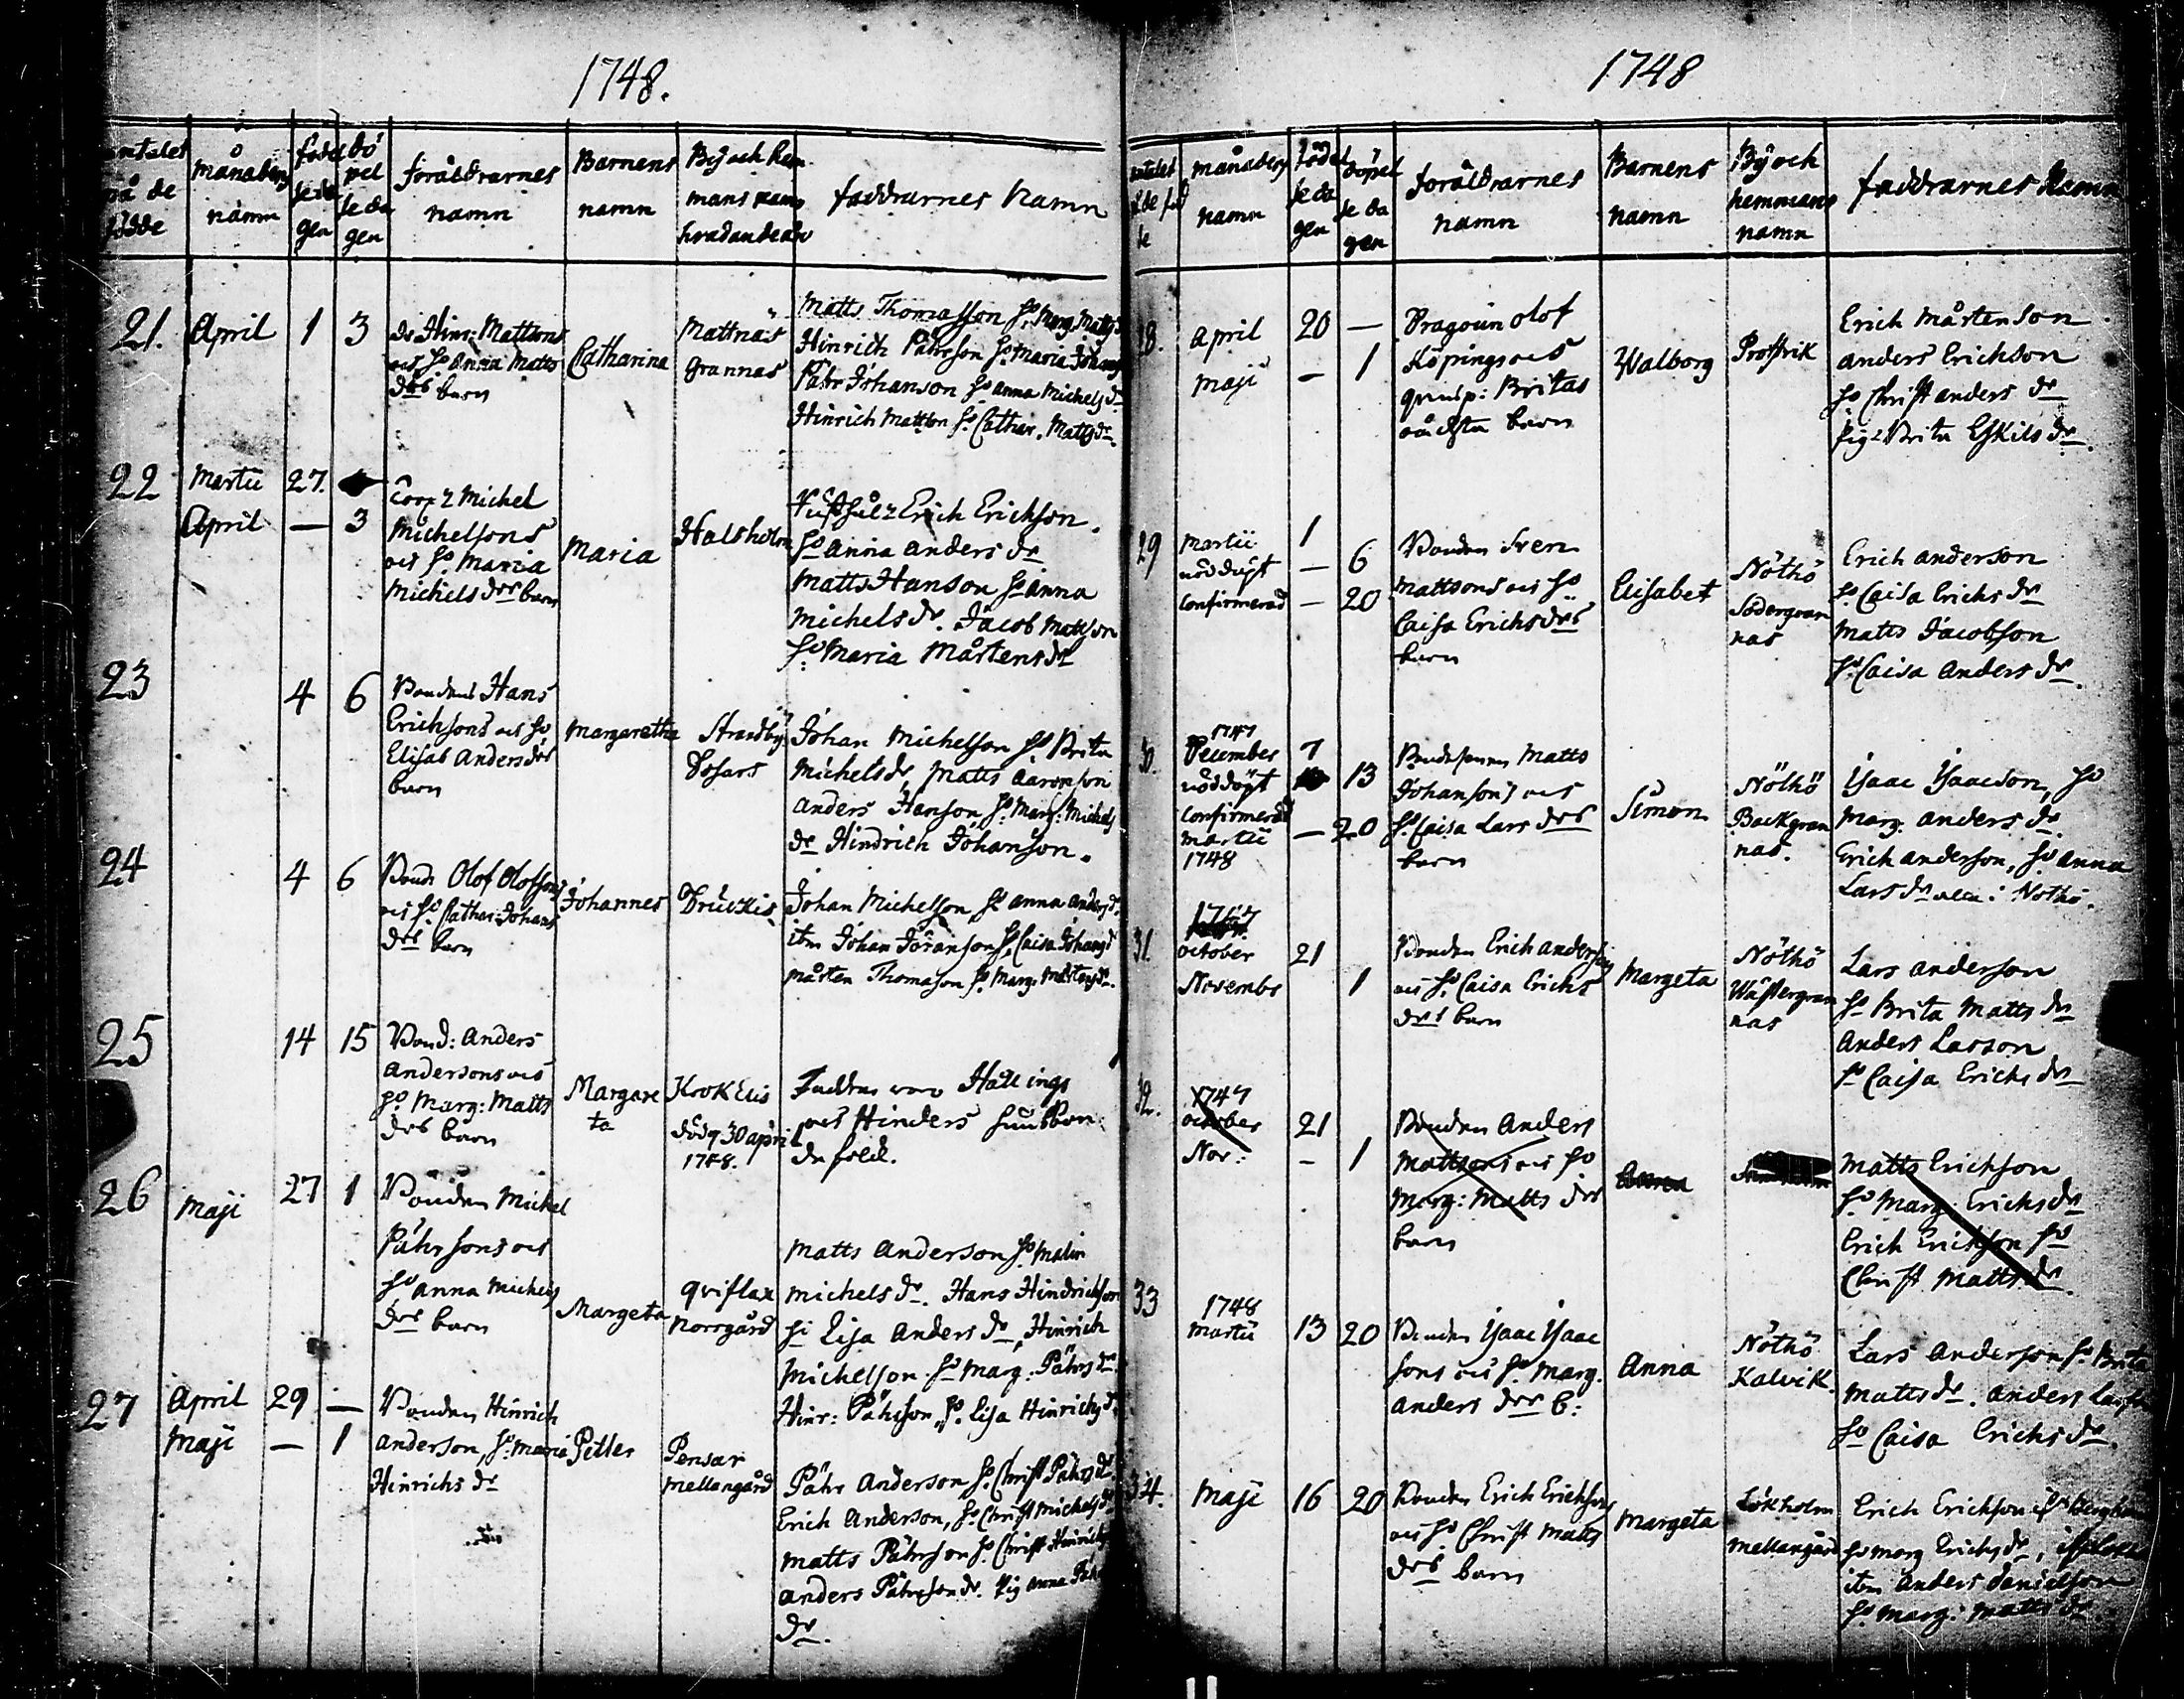 1748.
månaderne
namn
föräldrarnes
namn
Barnens
namn
Bÿ och hem
mans namn
faddrarnes namn
21. April 1 3
Hinr: Mattsons
och h: Anna Matts
drs barn
Catharina
Mattnas
Grannas
Matts Thomasson h: Marg. Matts dr
Hinrich Påhrson h: Maria Johans
Påhr Johanson h: Anna Michels dr
Hinrich Mattson h: Cathar. Matts dr
22 Martii 27.
April — 3
Corp: Michel
Michelsons
och h: Maria
Michels drs barn
Maria
Halsholm
Erich Erichson.
h: Anna Anders dr
Matts Hanson h: Anna
Michels dr. Jacob Mattson
h: Maria Mårtens dr
23
4 6
Bondens Hans
Erichsons och h:
Elisab Anders drs
barn
Margaretha
Strandbÿ
Johan Michelson h: Brita
Michels dr, Matts Aaronson
Anders Hanson h: Marg: Michels
dr Hindrich Johanson.
24
4 6
Bond: Olof Olofsons
och h: Cathar: Johans
drs barn
Johannes
Druckis
Johan Michelson h: Anna Anders dr
itm Johan Joranson h: Caisa Johans dr
Mårten Thomason h: Marg: Mårtens dr.
25
14 15
Bond: Anders
Andersons och
h: Marg: Matts
drs barn
Margare
ta
Krokelis
död 30 april
1748.
Faddrar voro Hällings
och Hinders husbon
de folck.
26 Maji 27 1
Bonden Michel
Påhrsons och
h: Anna Michels
drs barn
Margeta
Qviflax
Norrgård
Matts Anderson h: Malin
Michels dr. Hans Hindrichson
h: Lisa Anders dr, Hinrich
Michelson h: Marg. Påhrs dr
Hinr: Påhrson, h: Lisa Hinrichs dr
27 April 29 —
Maji — 1
Bonden Hinrich
Anderson, h: Maria
Hinrichs dr
Petter
Pensar
Mellangård
Påhr Anderson h: Christ Påhrs dr
Erich Anderson, h: Christ Michels dr
Matts Påhrson h: Christ Hinrichs
Anders Påhrson dr. Pig Anna Påhrs
dr.
1748
månaders
namn
föräldrarnes
namn
Barnens
namn
Bÿ och
hemmans
namn
faddrarnes Namn
28. April 20 —
Maji — 1
Dragoun Olof
Köpings och
Britas
oächta barn
Walborg
Prostvik
Erich Mårtenson
Anders Erichson
h: Christ Anders dr
Pig: Brita Eskils dr
29 Martii 1
nöddöpt — 6
Confirmerad — 20
Bonden Sven
Mattsons och h:
Caisa Erichs drs
barn
Elisabet
Nöthö
Södergran
nas
Erich Anderson
h: Caisa Erichs dr
Matts Jacobson
h: Caisa Anders dr
30. 1747
December 7
nöddöpt 13
Confirmerad
Martii — 20
1748
Matts
Johansons och
h: Caisa Lars drs
barn
Simon
Nöthö
Backgran
nas.
Ysaac Ysaacson, h:
Marg: Anders dr.
Erich Anderson, h: Anna
Lars dr: Nöthö.
31. 1747
October 21
Novembr 1
Bonden Erich Andersons
och h: Caisa Erichs
drs barn
Margeta
Nöthö
Wästergran
nas
Lars Anderson
h: Brita Matts dr
Anders Larson
h: Caisa Erichs dr
32. 1747
October 21
Nov: — 1
Bonden Anders
Mattsons och h:
Marg: Matts drs
barn
Matts Erichson
h: Marg: Erichs dr
Erich Erichson h:
Christ Matts dr
33 1748
Martii 13 20
Bonden Ysaac Ysaac
sons och h: Marg.
Anders drs b:
Anna
Nöthö
Kalvik.
Lars Anderson h: Brita
Matts dr. Anders Larson
h: Caisa Erichs dr.
34. Maji 16 20
Bonden Erich Erichsons
och h: Christ Matts
drs barn
Margeta
Lökholm
Mellangård
Erich Erichson
h: Marg Erichs dr,
itm Anders Danielson
h: Marg: Matts dr